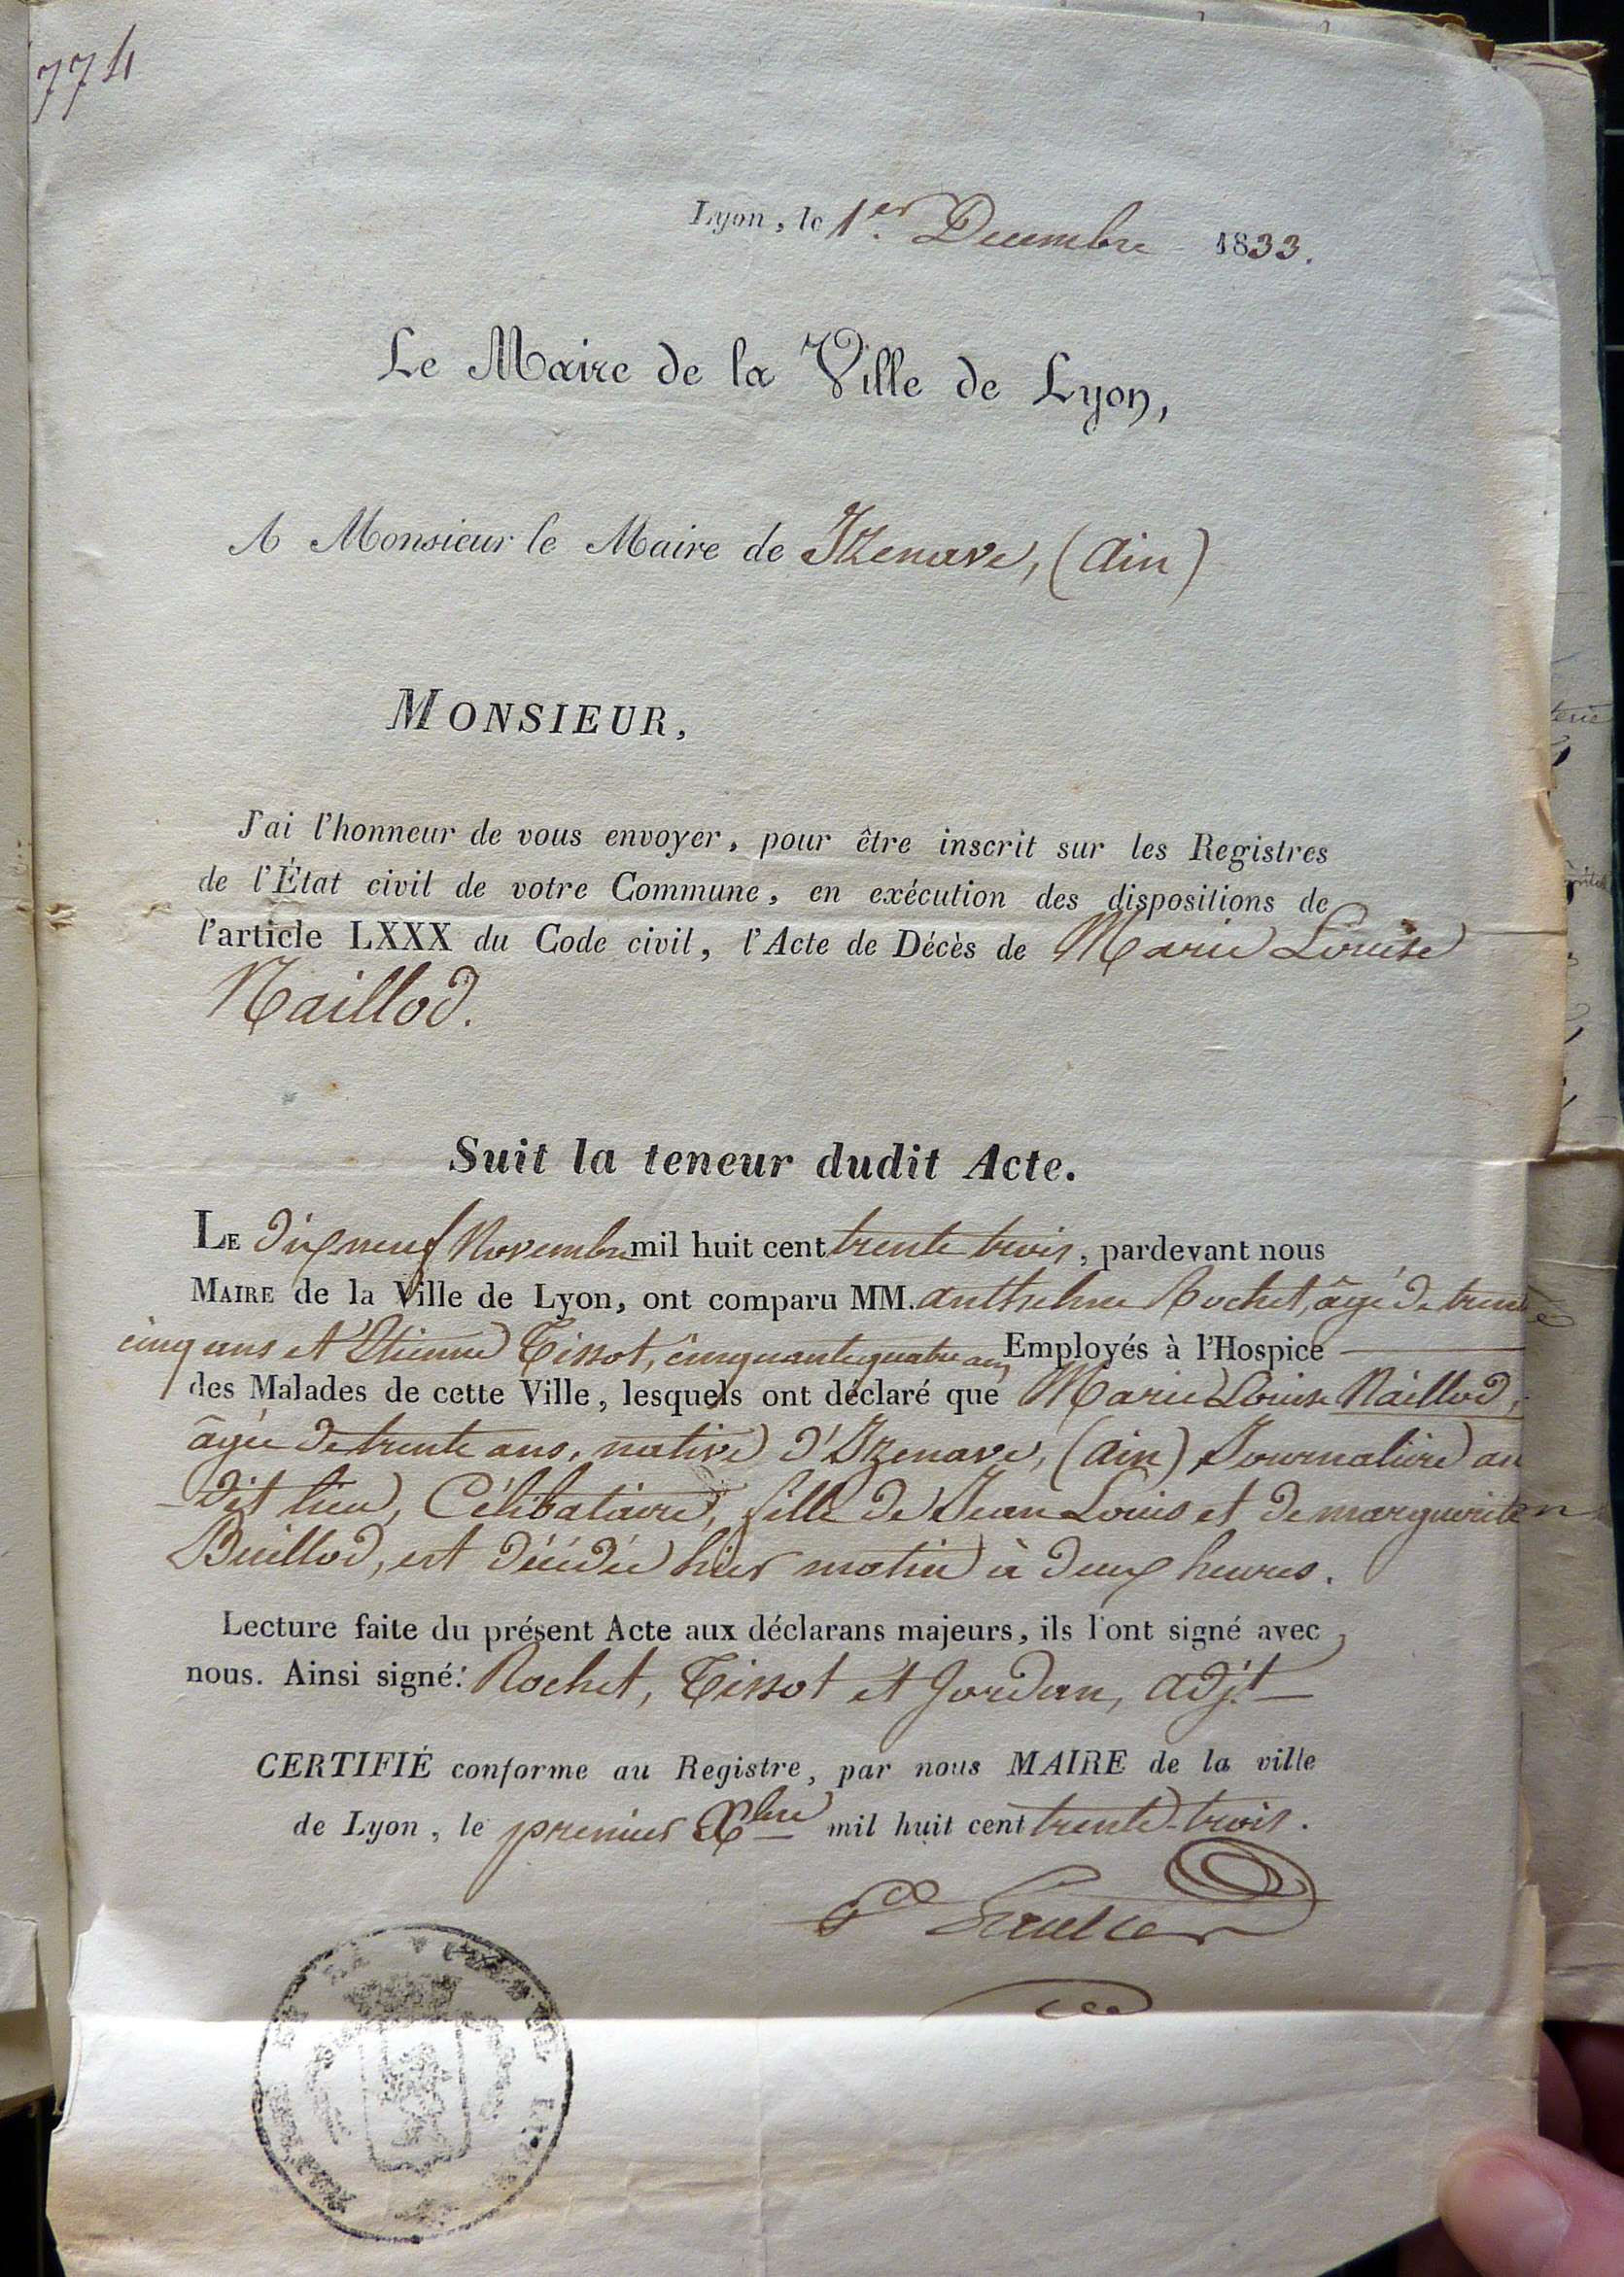 774
Lyon, le 1er. Decembre 1833.
Le Maire de la Ville de Lyon,
A Monsieur le Maire de Izenave, (Ain)
MONSIEUR,
J'ai l'honneur de vous envoyer, pour être inscrit sur les Registres
de l'État civil de votre Commune, en exécution des dispositions de
l'article LXXX du Code civil, l'Acte de Décès de Marie Louise
Naillod.
Suit la teneur dudit Acte.
LE dix neuf Novembre mil huit cent trente trois, pardevant nous
MAIRE de la Ville de Lyon, ont comparu MM. anthelme Rochet, âgé de trente
cinq ans et Etienne Tissot, cinquante quatre ans, Employés à l'Hospice
des Malades de cette Ville, lesquels ont déclaré que Marie Louise Naillod,
âgée de trente ans, native d'Izenave, (ain) Journalière au
dit lieu, Célibataire, fille de Jean Louis et de marguerite
Buillod, est décédée hier matin à deux heures.
Lecture faite du présent Acte aux déclarans majeurs, ils l'ont signé avec
nous. Ainsi signé: Rochet, Tissot et Jordan, adj.t
CERTIFIÉ conforme au Registre, par nous MAIRE de la ville
de Lyon, le premier Xbre mil huit cent trente-trois.